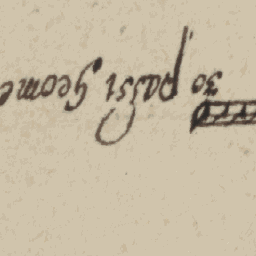 30 passi Geome